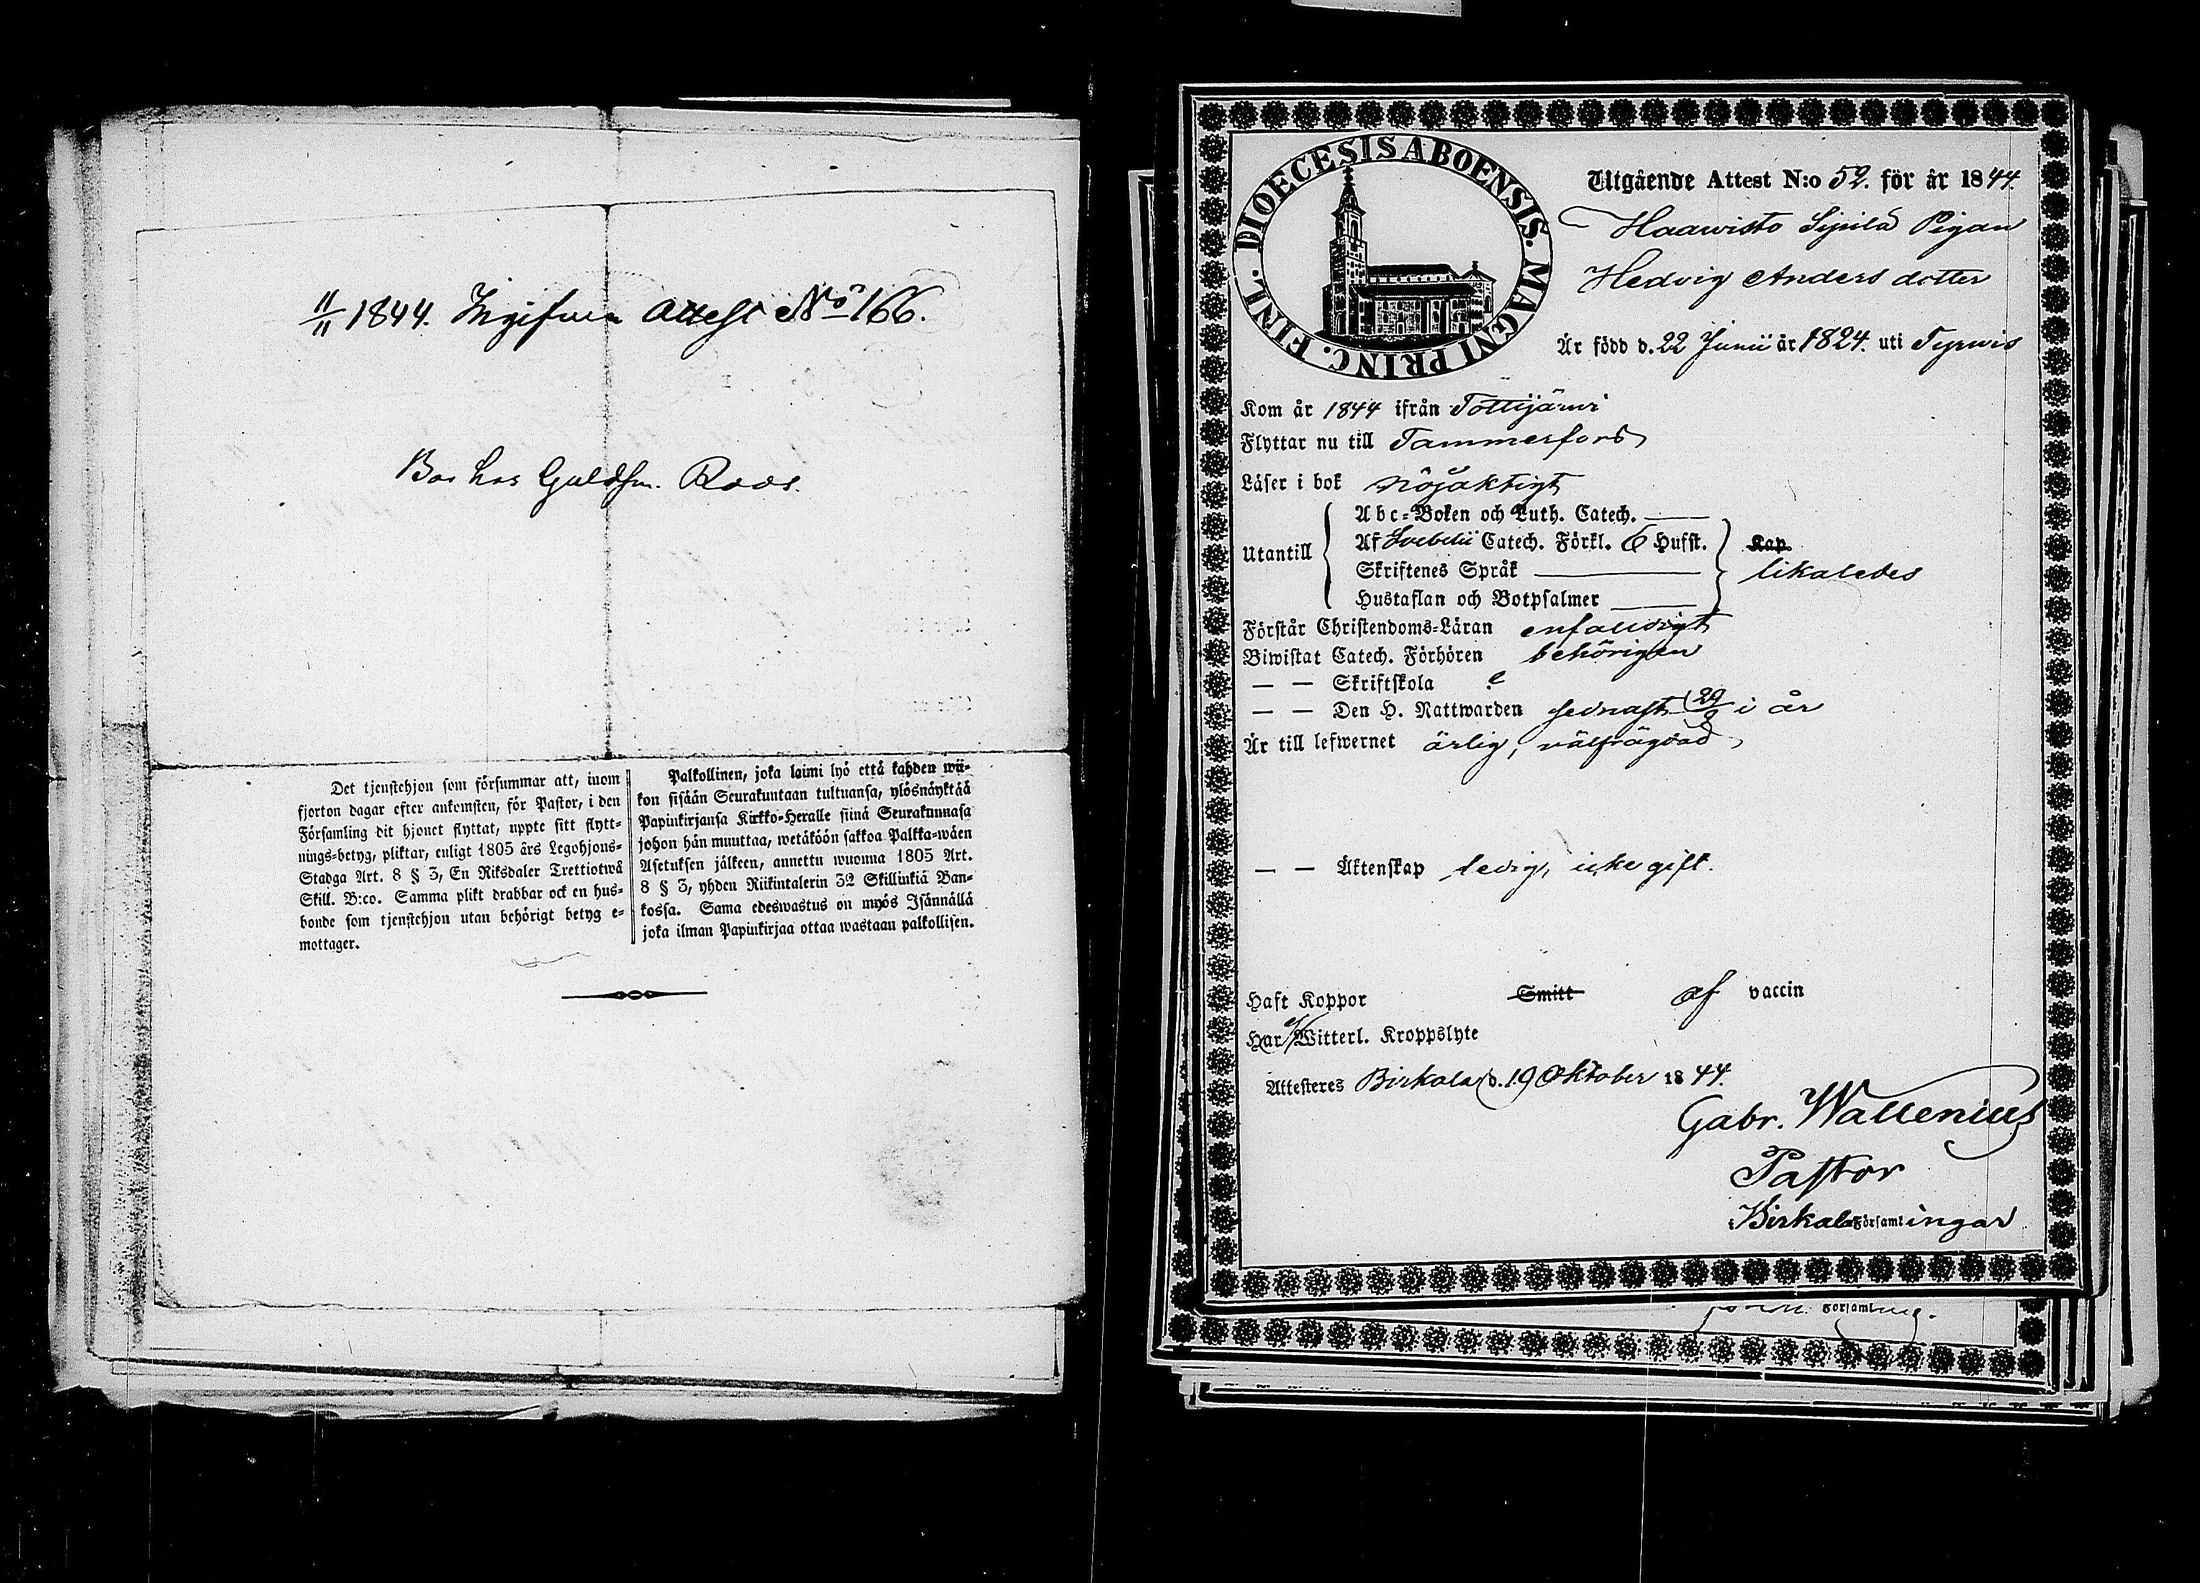 11/11 1844. Ingifven Attest No 166.
Bor hos Guldsm. Roos.
Det tjenstehjon som försummar att, inom
fjorton dagar efter ankomsten, för Pastor, i den
Församling dit hjonet flyttat, uppte sitt flytt-
nings-betyg, pliktar, enligt 1805 års Legohjons-
Stadga Art. 8 § 3, En Riksdaler Trettiotwå
Skill. B:co. Samma plikt drabbar ock en hus-
bonde som tjenstehjon utan behörigt betyg e-
mottager.
Palkollinen, joka laimi lyö että kahden wii-
kon sisään Seurakuntaan tultuansa, ylösnäyktää
Papinkirjansa Kirkko-Heralle siinä Seurakunnasa
johon hän muuttaa, wetäköön sakkoa Palkka-wäen
Asetuksen jälkeen, annettu wuonna 1805 Art.
8 § 3, yhden Riikintalerin 32 Skillinkiä Ban-
kossa. Sama edeswastus on myös Isännällä
joka ilman Papinkirjaa ottaa wastaan palkollisen.
DIOECESIS ABOENSIS. MAGNI PRINC. FINL.
Utgående Attest N:o 52. för år 1844.
Haawisto Sipilä Pigan
Hedvig Andersdotter
Är född d. 22 Junii år 1824. uti Tyrwis
Kom år 1844 ifrån Tottijärwi
Flyttar nu till Tammerfors
Läser i bok nöjaktigt
Utantill
Abc-Boken och Luth. Catech.
Af Svebelii Catech. Förkl. 6 Hufst.
Skriftenes Språk
Hustaflan och Botpsalmer
Kap
likaledes
Förstår Christendoms-Läran enfaldigt
Biwistat Catech. Förhören behörigen
— — Skriftskola
— — Den H. Nattwarden sednast 29/9 i år
Är till lefwernet ärlig, välfrägdad
— — Äktenskap ledig, icke gift.
Haft Koppor Smitt af vaccin
Har ej Witterl. Kroppslyte
Attesteres Birkala d. 19 Oktober 1844.
Gabr. Wallenius
Pastor
i Birkala Församlingar
Församling.